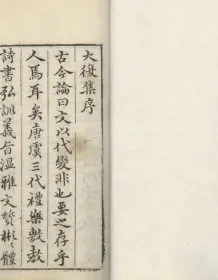 大復集序
古今論曰文以代變非也要之存乎
人焉耳矣唐虞三代禮樂敷教
詩書弘訓義旨溫雅文質彬彬體